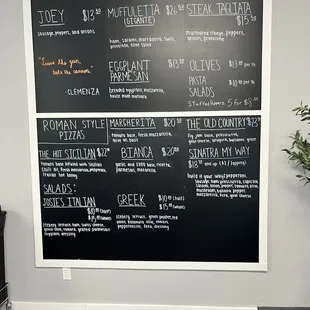 JOEY $13.50
sausage, peppers, and onions
"Leave the gun,
take the cannoli."
-CLEMENZA
MUFFULETTA $26.50
(GIGANTE)
ham, salami, mortadella, swiss,
provolone, olive salad
EGGPLANT $13.50
PARMESAN
breaded eggplant, mozzarella,
house made marinara
STEAK TAGLIATA
$15.50
marinated ribeye, peppers,
onions, provolone
OLIVES per lb.
PASTA per lb.
SALADS
Stuffed Peppers 5 for $3
ROMAN STYLE
PIZZAS
THE HOT SICILIAN
tomato base infused with Sicilian
Chili oil, fresh mozzarella, peppers,
Italian hot honey
SALADS:
JOSIE'S ITALIAN
(half)
(whole)
iceberg lettuce, ham, swiss cheese,
green olive, tomato, grated parmesan,
eggplant, dressing
MARGHERITA $20
tomato base, fresh mozzarella,
olive oil, basil
BIANCA $20
garlic and EVOO base, ricotta,
parmesan, mozzarella
GREEK $10 (half)
$15 (whole)
iceberg lettuce, green pepper, red
onion, kalamata olive, tomato,
pepperoncini, feta, dressing
THE OLD COUNTRY $23
fig jam base, prosciutto,
goat cheese, arugula, balsamic glaze
SINATRA MY WAY
$18 and up (+$1/topping)
build it your way! pepperoni,
sausage, ham, prosciutto, capicola,
salami, onion, pepper, tomato, olive,
mushroom, banana pepper,
mozzarella, feta, goat cheese